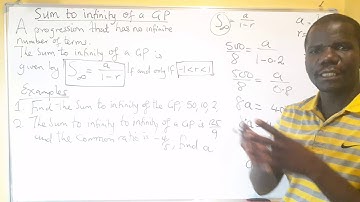 Sum to infinity of a GP
A progression that has no infinite
number of terms.
The Sum to infinity of a GP is
given by S∞ = a/1-r if and only if -1<r<1
Examples
1. Find the Sum to infinity of the GP, 50, 10, 2
2. The Sum to infinity to infinity of a GP is 25/9
and the Common ratio is - 4/5, find a
S∞ = a/1-r
500/8 = a/1-0.2
500/8 = a/0.8
8a =